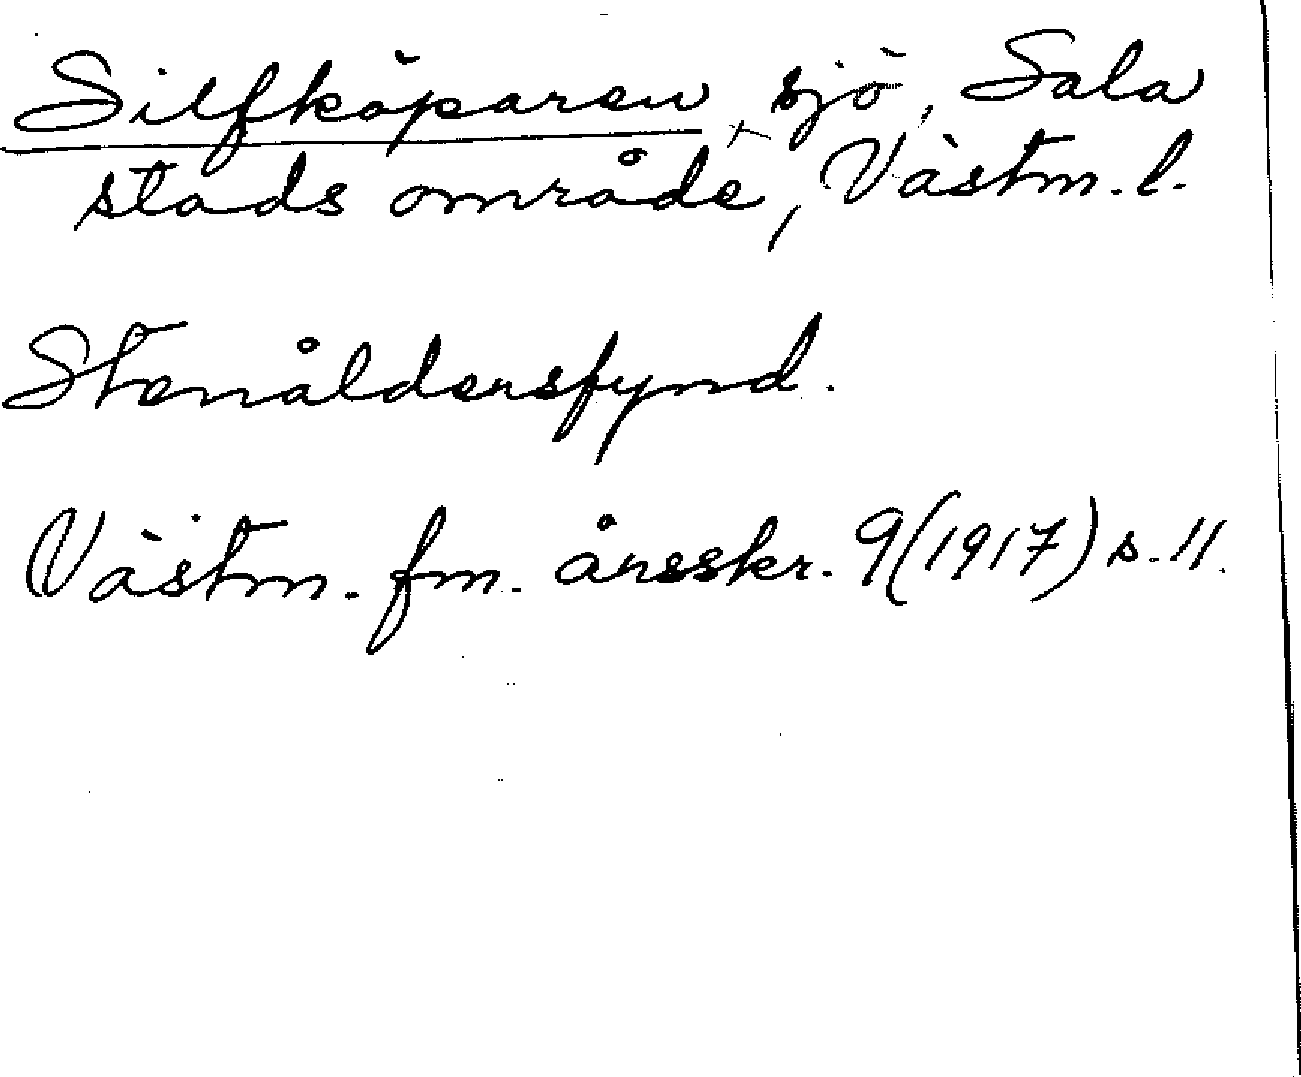 Silfköparen, sjö, Sala
stads område, Västm. l.
Stenåldersfynd.
Västm. fm. årsskr. 9(1917) s. 11.